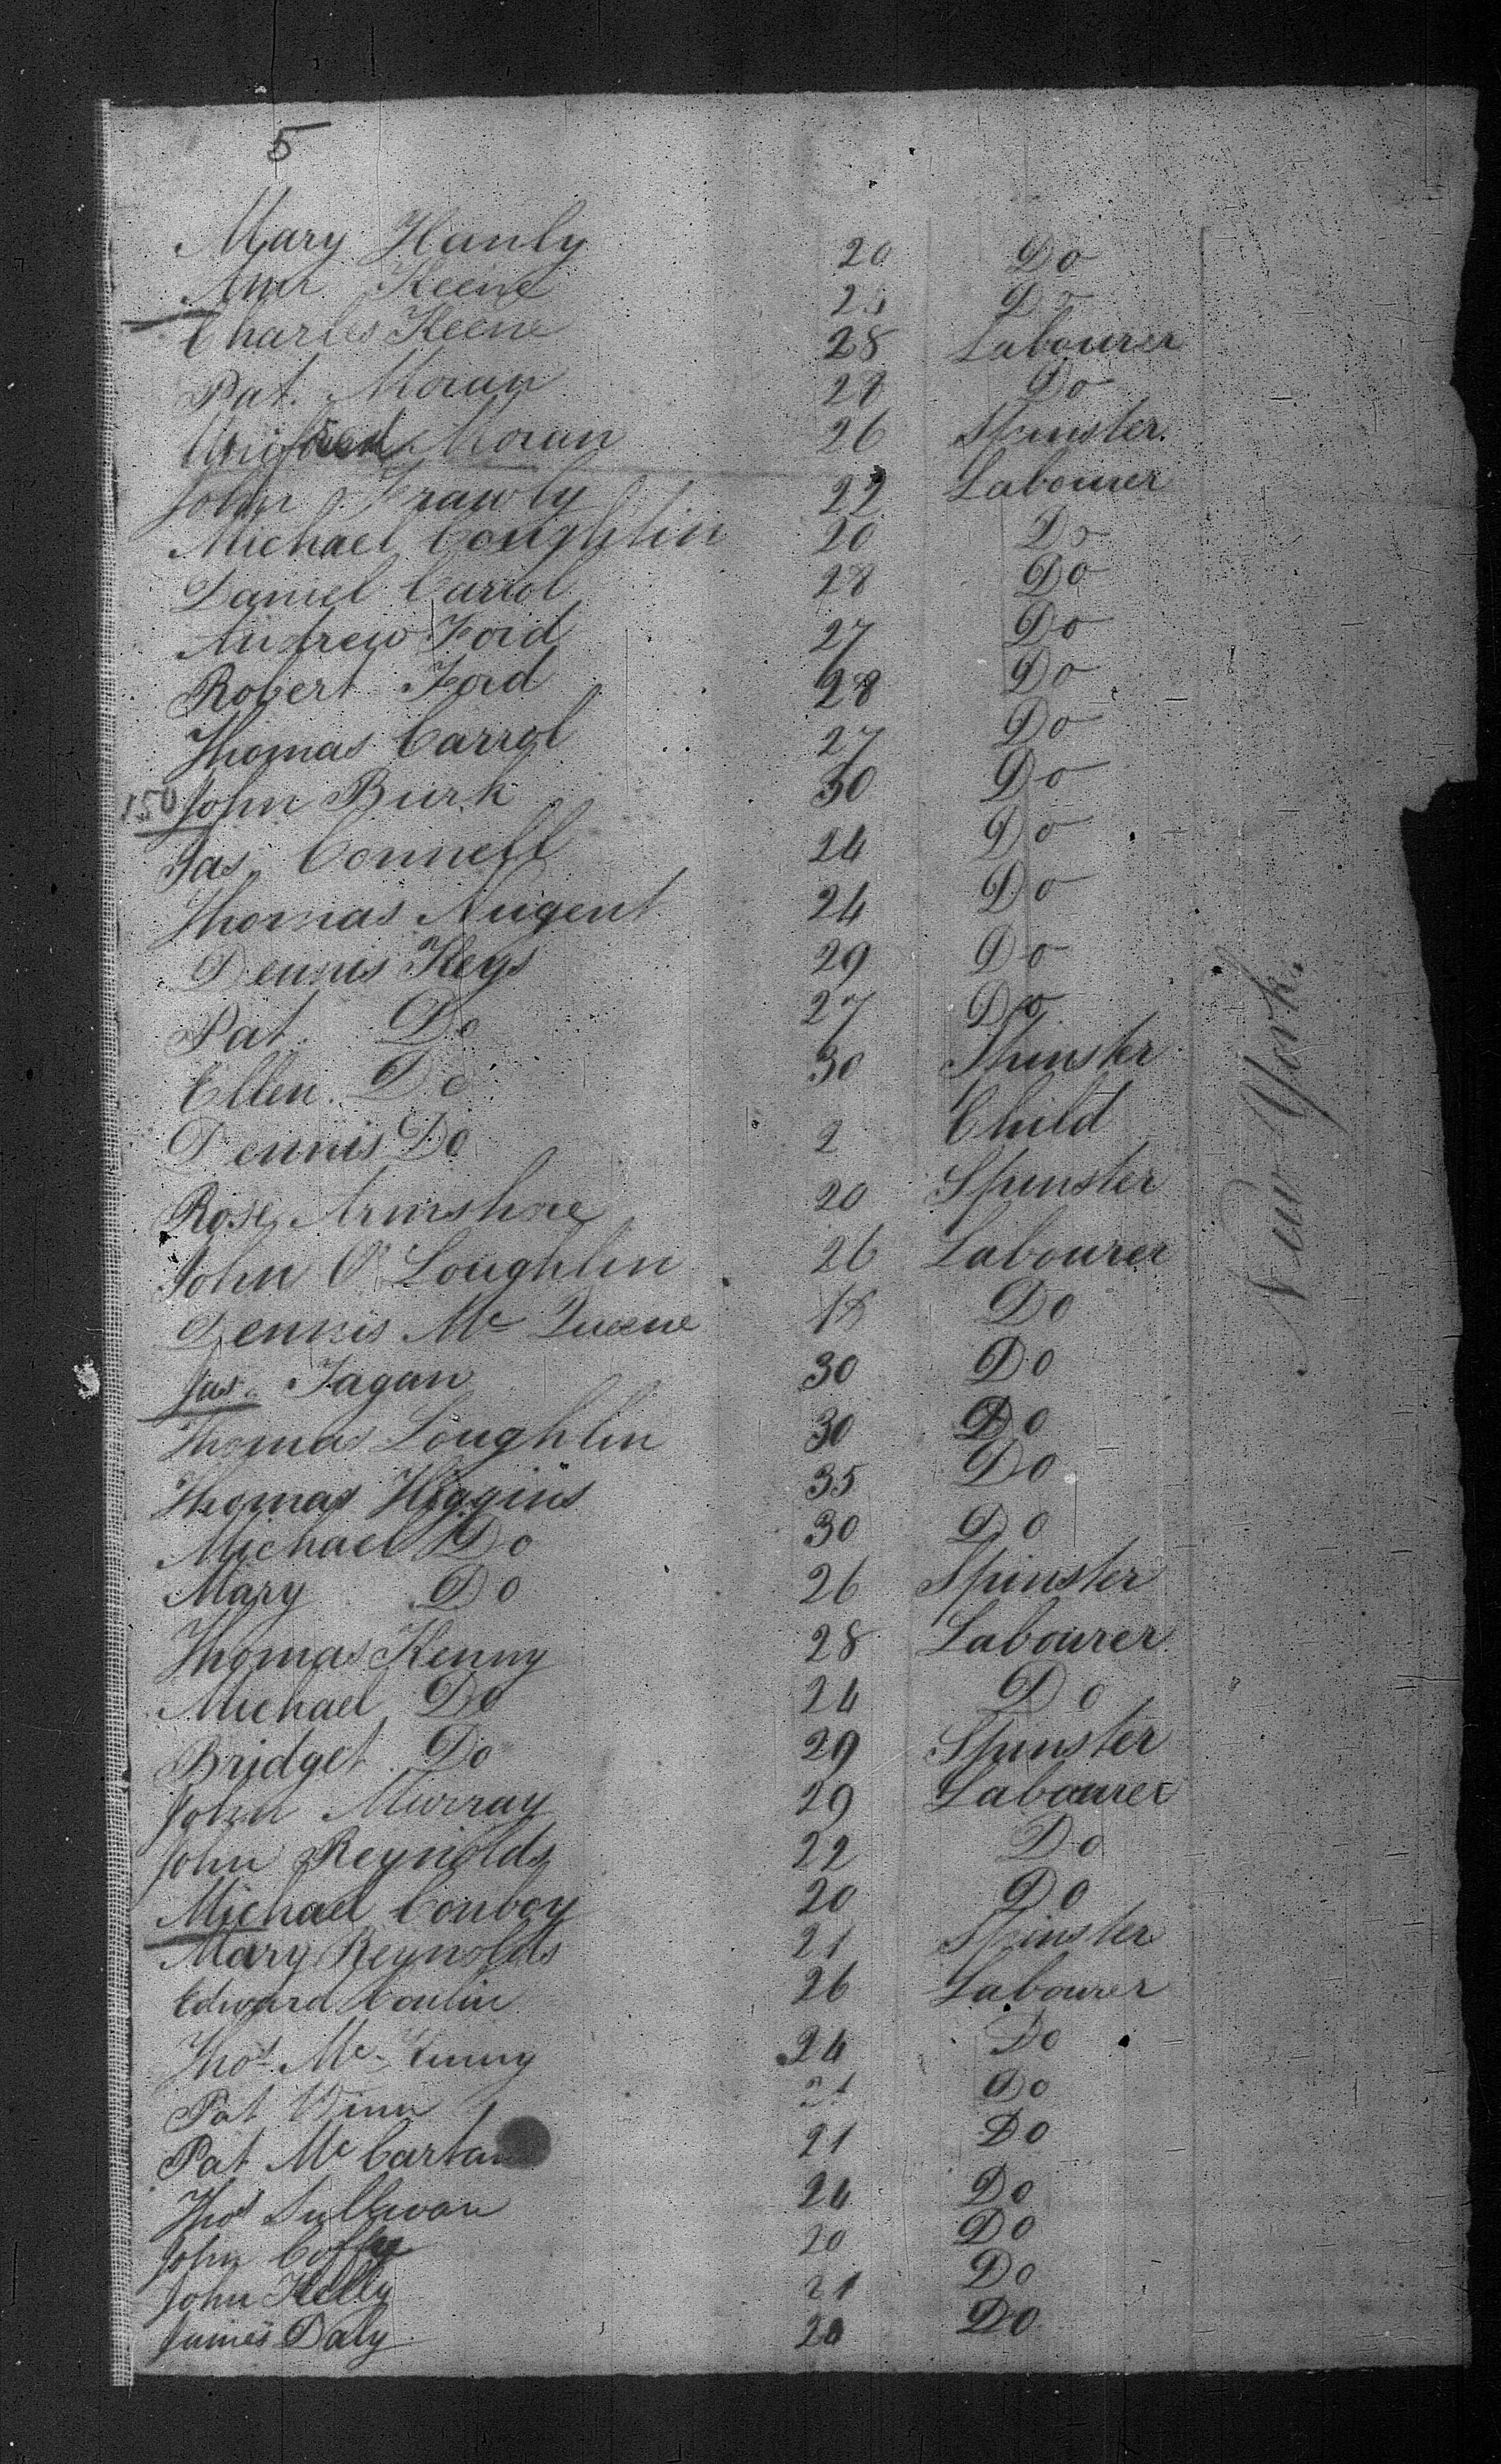 5
Mary Hanly 20 Do
Ann Keene 2 Do
Charles Keene 28 Labourer
Pat. Moran 28 Do
Moran 26 Spinster
John Frawly 22 Labourer
Michael Coughlin 20 Do
Daniel Carrol 28 Do
Andrew Ford 27 Do
Robert Ford 28 Do
Thomas Carrol 27 Do
150 John Burk 30 Do
Jas. Connell 24 Do
Thomas Nugent 24 Do
Dennis Keys 29 Do
Pat. Do 27 Do
Ellen Do 30 Spinster
Dennis Do 2 Child
Rose 20 Spinster
John O'Loughlin 26 Labourer
Dennis Mc Queene 18 Do
Jas. Fagan 30 Do
Thomas Loughlin 30 Do
Thomas Higgins 35 Do
Michael Do 30 Do
Mary Do 26 Spinster
Thomas Kenny 28 Labourer
Michael Do 24 Do
Bridget Do 29 Spinster
John Murray 29 Labourer
John Reynolds 22 Do
Michael Conboy 20 Do
Mary Reynolds 21 Spinster
Edward Conlin 26 Labourer
Thos. Mc Kenny 24 Do
Pat Do
Pat Mc Cartan 21 Do
Thos Sullivan 24 Do
John Coffey 20 Do
John Kelly 21 Do
James Daly 20 Do
New York.